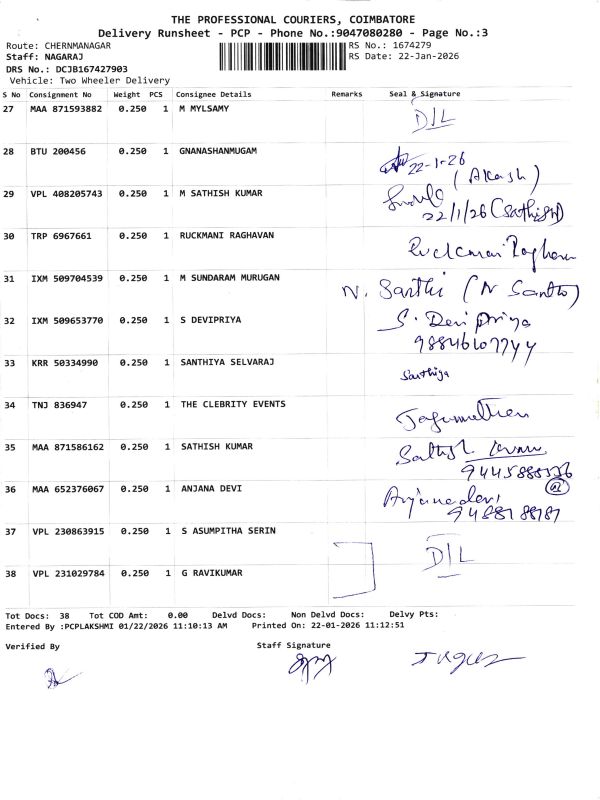 THE PROFESSIONAL COURIERS, COIMBATORE
Delivery Runsheet - PCP - Phone No.:9047080280 - Page No.:3
Route: CHERNMANAGAR RS No.: 1674279
Staff: NAGARAJ RS Date: 22-Jan-2026
DRS No.: DCJB167427903
Vehicle: Two Wheeler Delivery
S No Consignment No Weight PCS Consignee Details Remarks Seal & Signature
27 MAA 871593882 0.250 1 M MYLSAMY D/L
28 BTU 200456 0.250 1 GNANASHANMUGAM 22-1-26
(Akash)
29 VPL 408205743 0.250 1 M SATHISH KUMAR
22/1/26 (Sathish)
30 TRP 6967661 0.250 1 RUCKMANI RAGHAVAN
31 IXM 509704539 0.250 1 M SUNDARAM MURUGAN N. Santhi (N Santhi)
32 IXM 509653770 0.250 1 S DEVIPRIYA S. Devi priya
33 KRR 50334990 0.250 1 SANTHIYA SELVARAJ Santhiya
34 TNJ 836947 0.250 1 THE CLEBRITY EVENTS
35 MAA 871586162 0.250 1 SATHISH KUMAR Sathish Kumar
36 MAA 652376067 0.250 1 ANJANA DEVI Anjanadevi
37 VPL 230863915 0.250 1 S ASUMPITHA SERIN D/L
38 VPL 231029784 0.250 1 G RAVIKUMAR
Tot Docs: 38 Tot COD Amt: 0.00 Delvd Docs: Non Delvd Docs: Delvy Pts:
Entered By :PCPLAKSHMI 01/22/2026 11:10:13 AM Printed On: 22-01-2026 11:12:51
Verified By Staff Signature